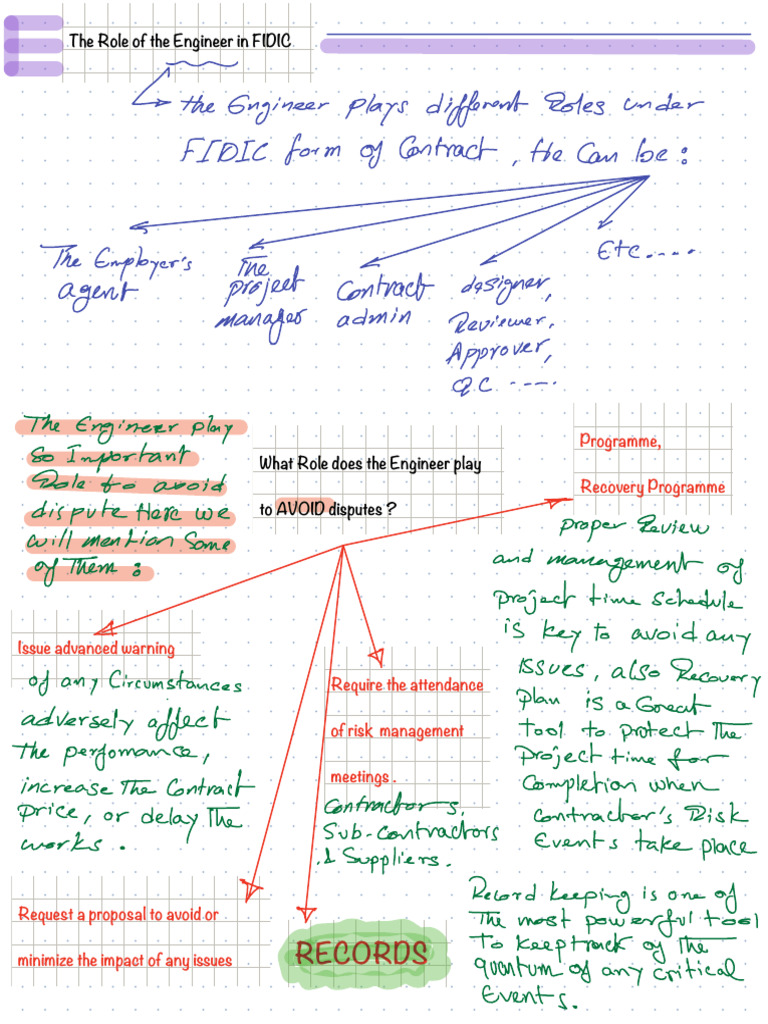 The Role of the Engineer in FIDIC
the Engineer plays different Roles under
FIDIC form of Contract, He Can be:
The Employer's
agent
The
project
manager
Contract
admin
designer,
Reviewer,
Approver,
QC .....
Etc.....
The Engineer play
so Important
Role to avoid
dispute Here we
will mention Some
of Them :
What Role does the Engineer play
to AVOID disputes ?
Programme,
Recovery Programme
proper Review
and management of
project time schedule
is key to avoid any
issues, also Recovery
plan is a Great
tool to protect The
project time for
Completion when
contractor's Risk
Events take place
Issue advanced warning
of any Circumstances
adversely affect
The perfomance,
increase The Contract
price, or delay The
works.
Require the attendance
of risk management
meetings .
Contractors,
Sub-contractors
& Suppliers.
Request a proposal to avoid or
minimize the impact of any issues
RECORDS
Record keeping is one of
The most powerful tool
To keep track of The
quantum of any critical
Events.